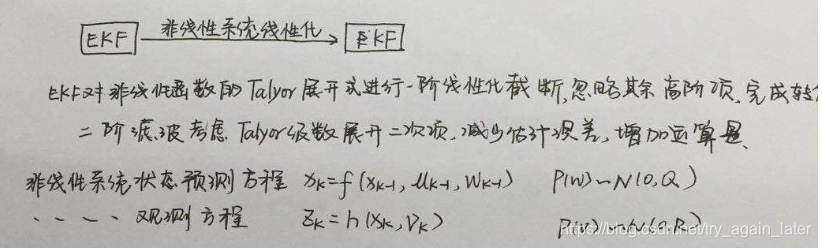 EKF 非线性系统线性化 KF
EKF对非线性函数的Talyor展开式进行一阶线性化截断,忽略其余高阶项,完成转
二阶滤波考虑Talyor级数展开二次项,减少估计误差,增加运算量、
非线性系统状态预测方程 xk=f(xk-1, uk-1, wk-1) P(w)~N(0,Q)
、、、、观测方程 zk=h(xk, vk) P(v)~N(0,R)
https://blog.csdn.net/try_again_later